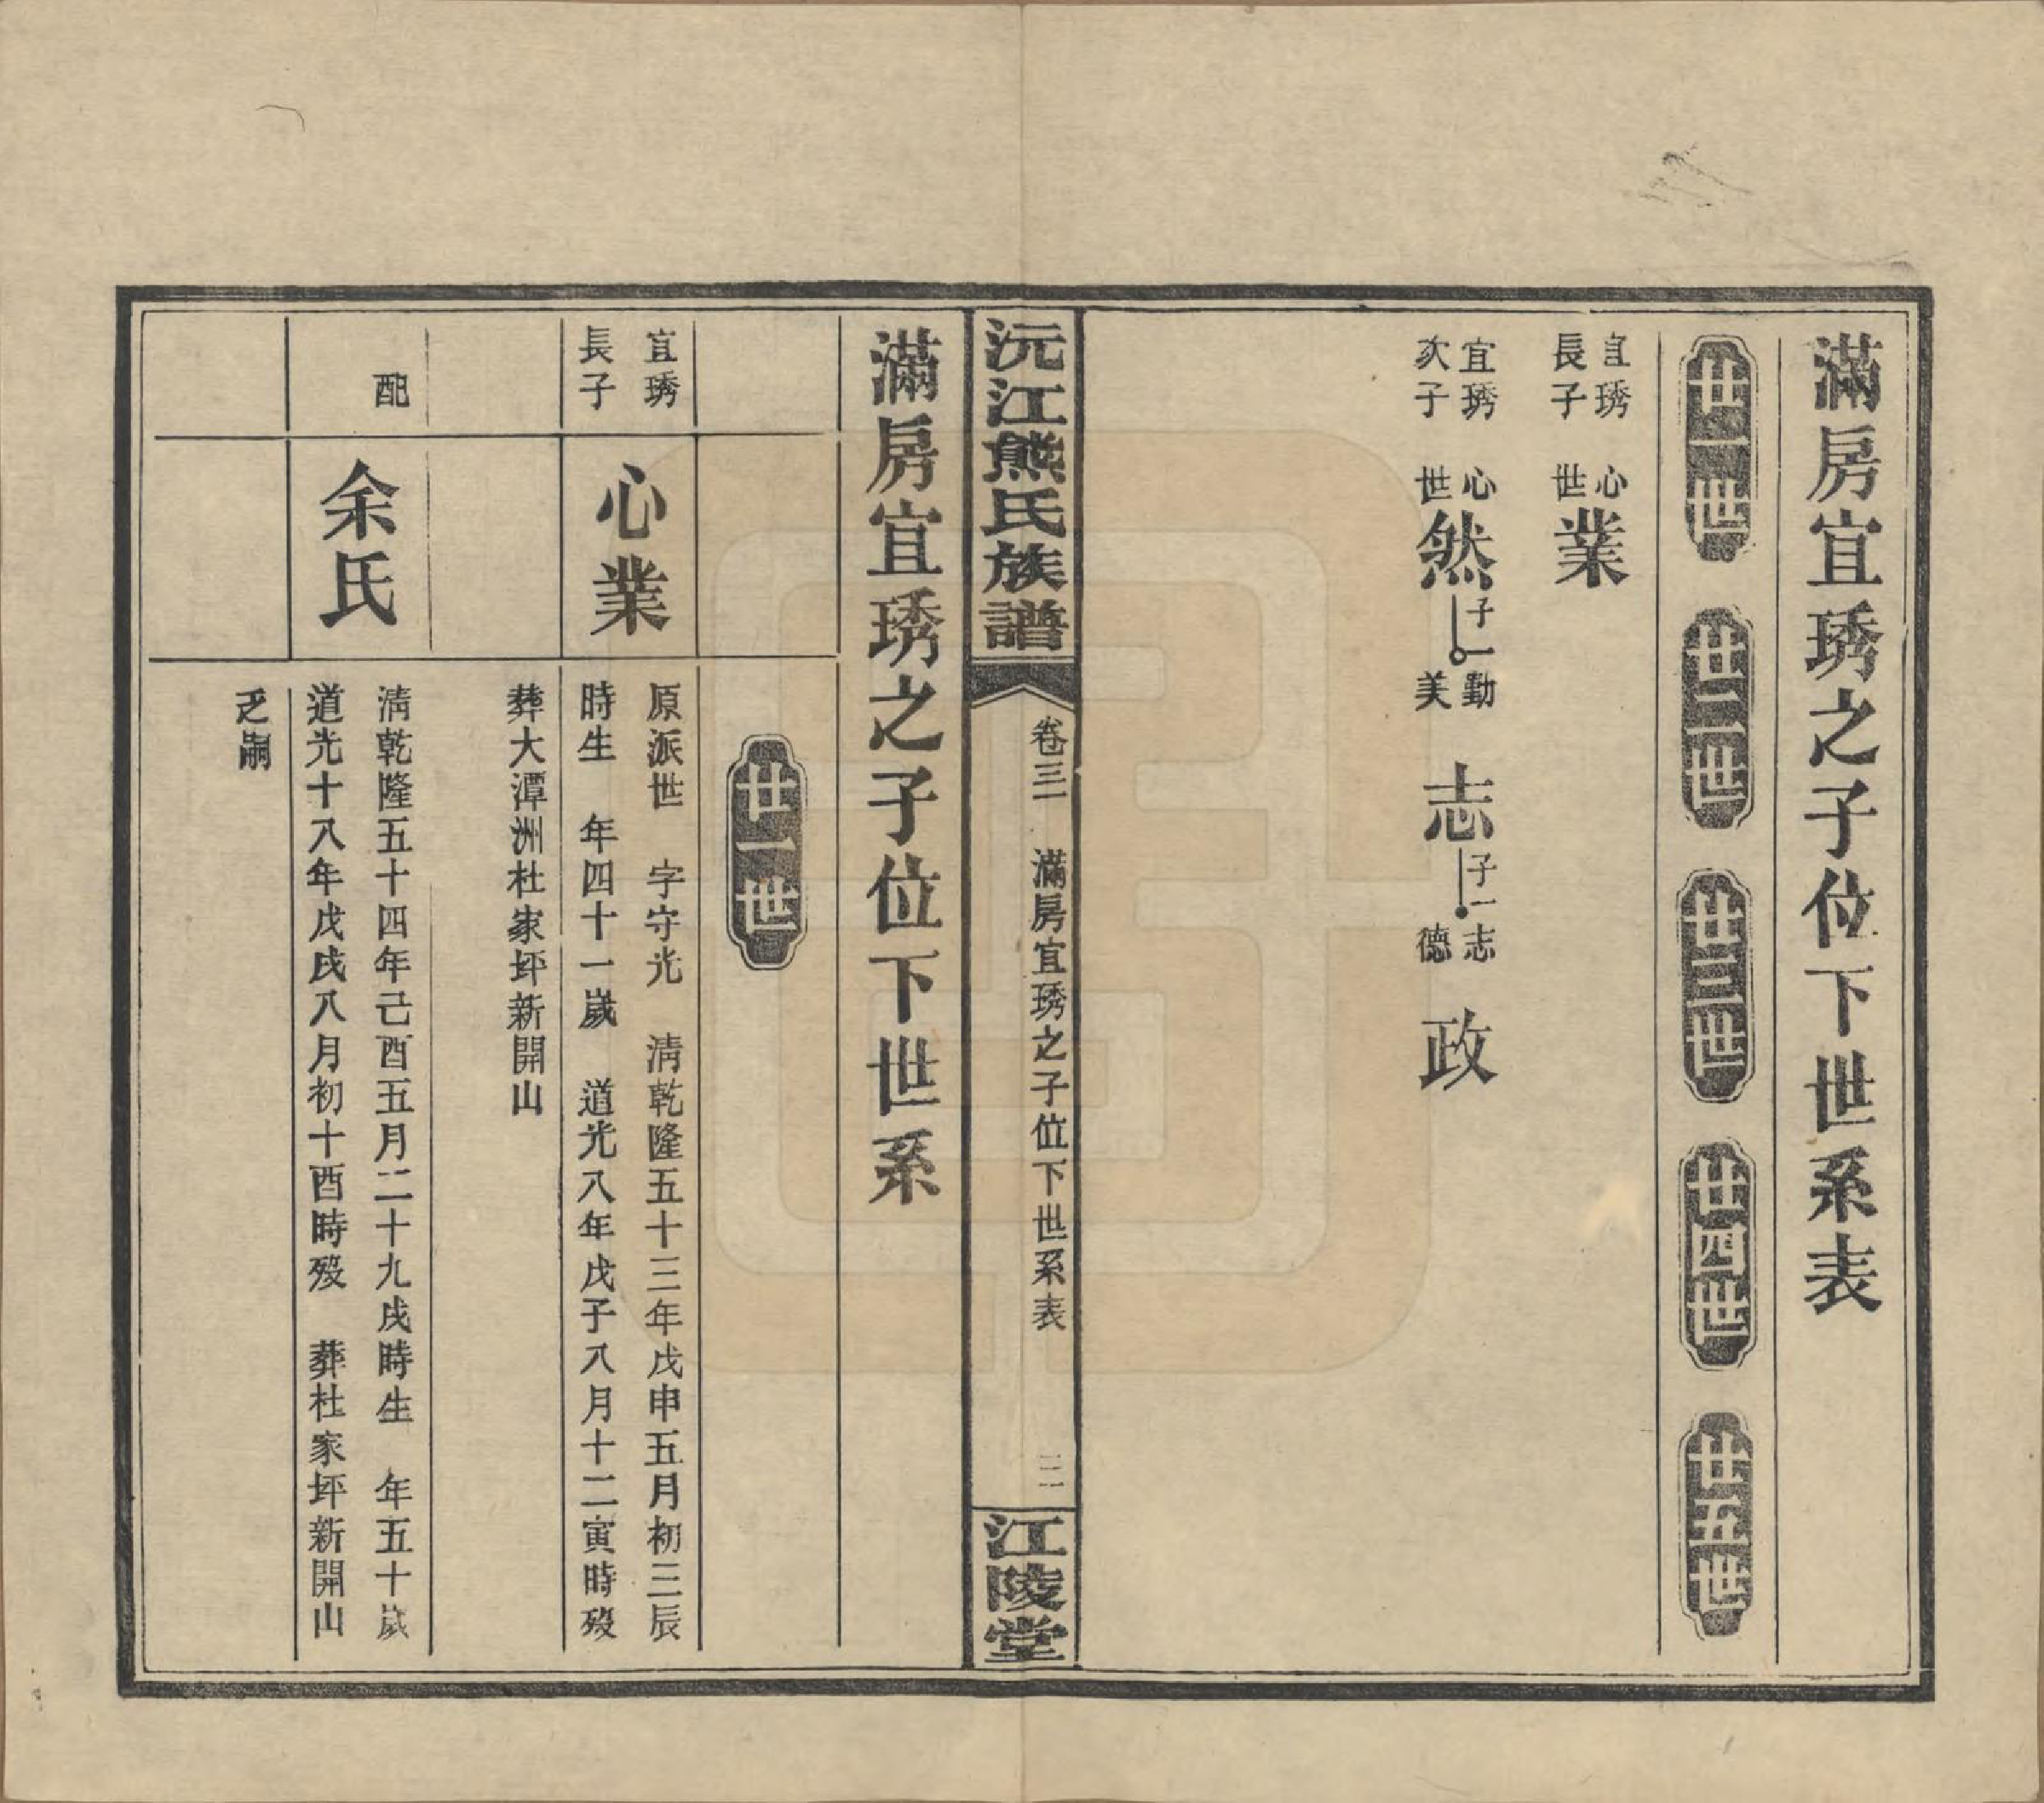 滿房宜琇之子位下世系表
廿一世
廿二世
廿三世
廿四世
廿五世
宜琇
長子
心
世
業
宜琇
次子
心
世
然
子一
勤
美
志
子一
志
德
政
沅江熊氏族譜
卷三
滿房宜琇之子位下世系表
二
江陵堂
滿房宜琇之子位下世系
廿一世
宜琇
長子
心業
原派世　字守光　清乾隆五十三年戊申五月初三辰
時生　年四十一歲　道光八年戊子八月十二寅時殁
葬大潭洲杜家坪新開山
配
余氏
清乾隆五十四年己酉五月二十九戌時生　年五十歲
道光十八年戊戌八月初十酉時殁　葬杜家坪新開山
乏嗣